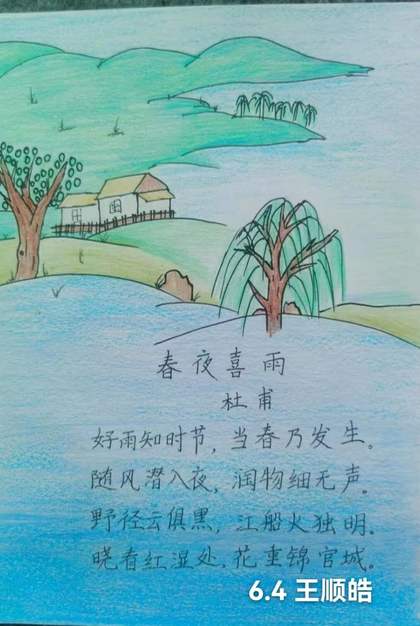 春夜喜雨
杜甫
好雨知时节，当春乃发生。
随风潜入夜，润物细无声。
野径云俱黑，江船火独明。
晓看红湿处，花重锦官城。
6.4 王顺皓